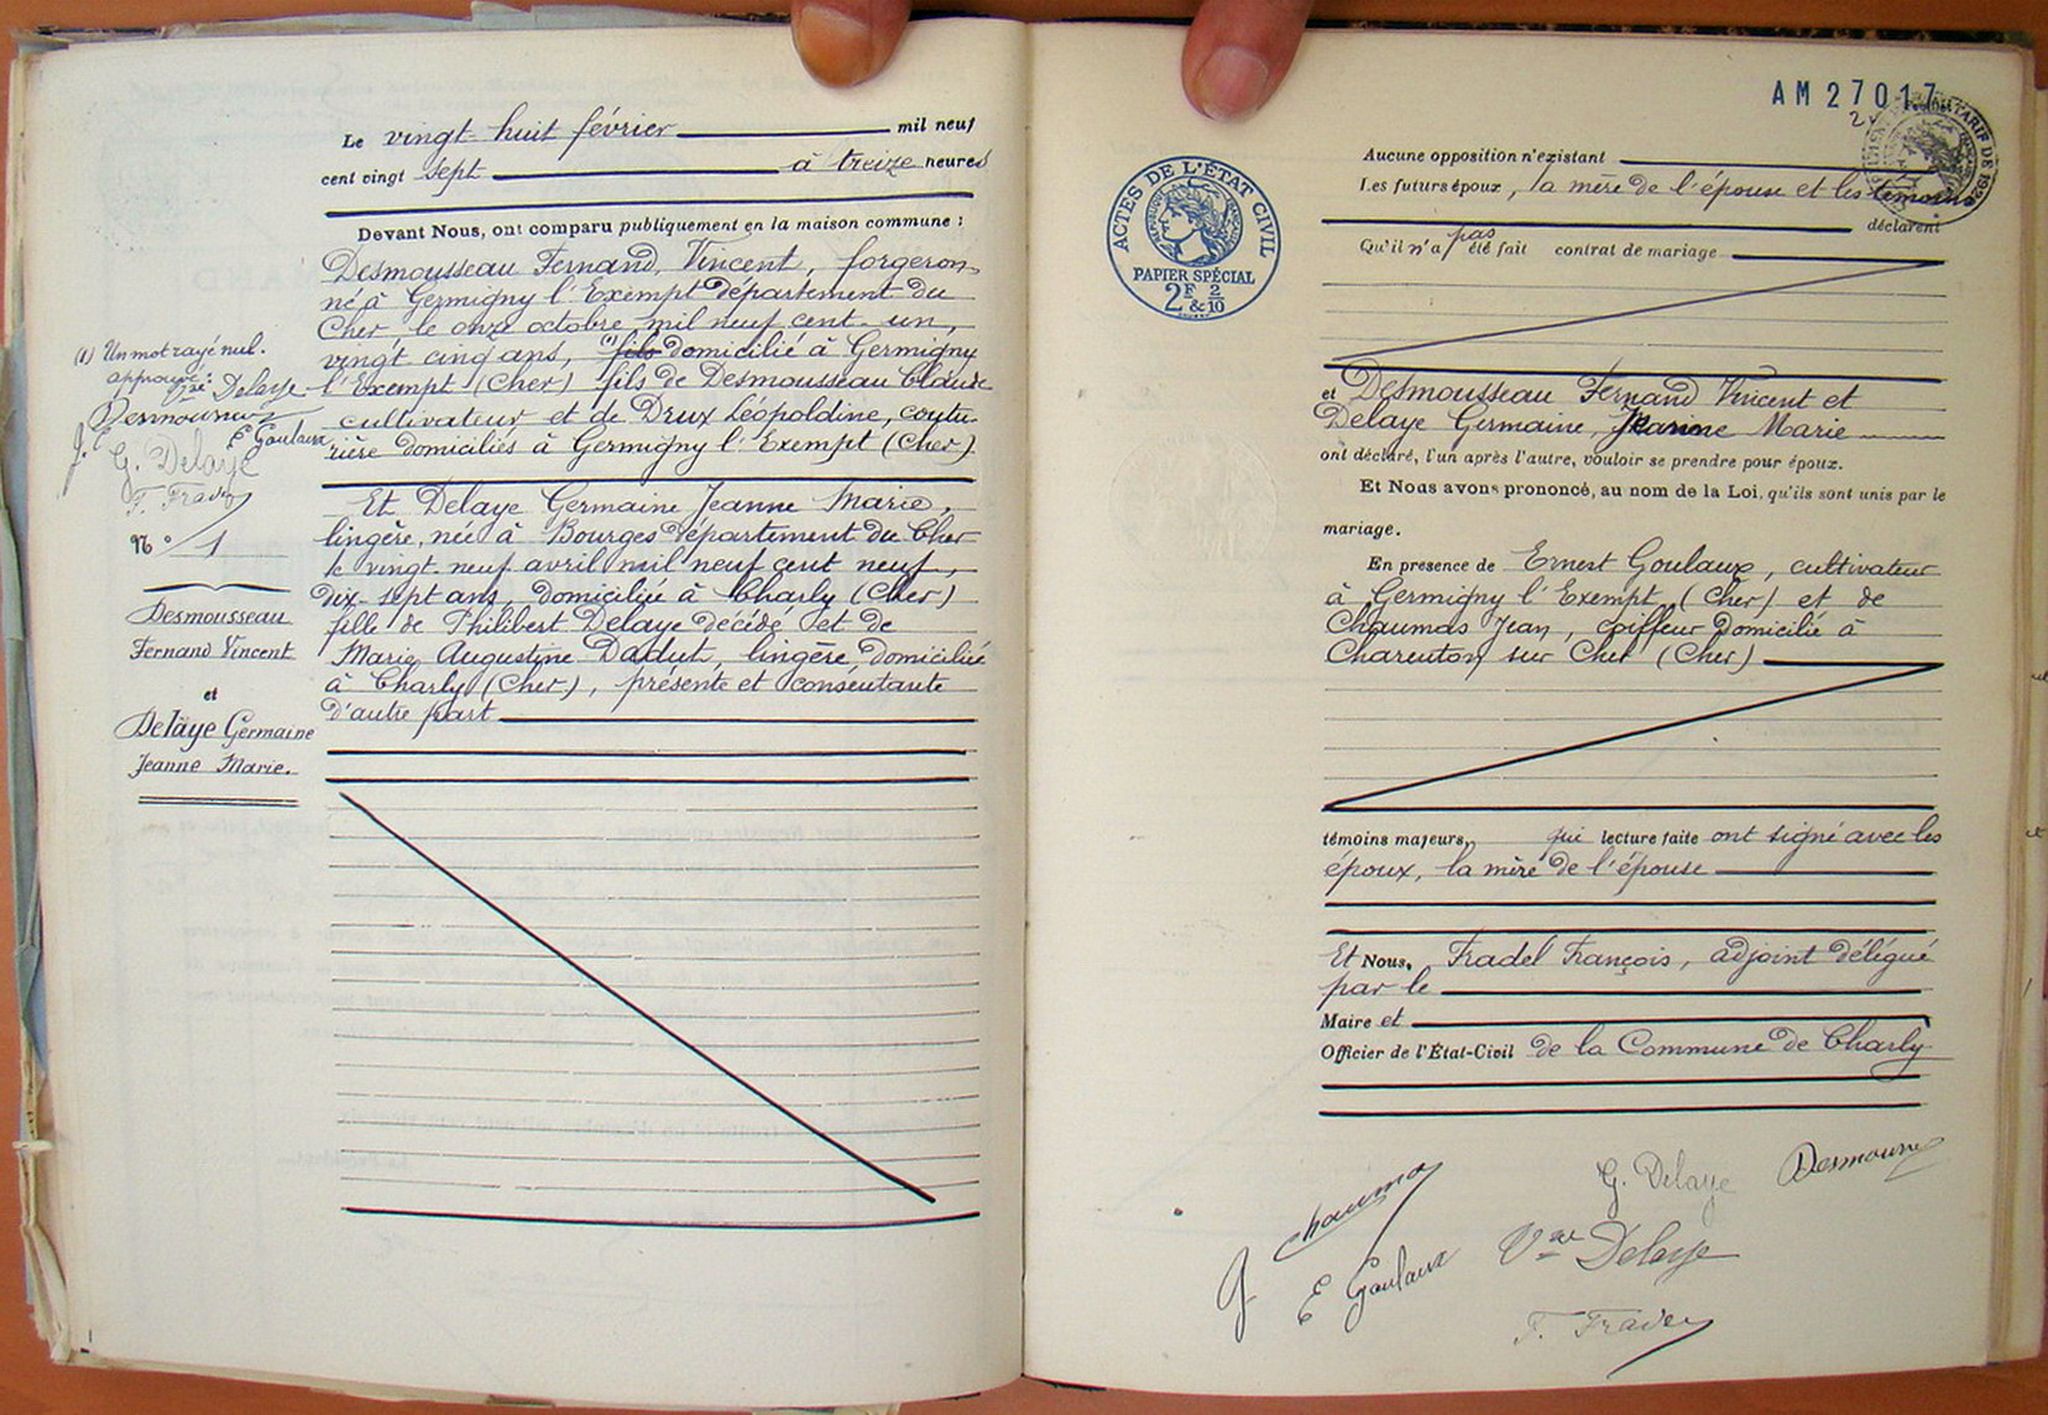 Le vingt-huit février mil neuf
cent vingt sept à treize heures
Devant Nous, ont comparu publiquement en la maison commune :
Desmousseau Fernand, Vincent, forgeron,
né à Germigny l'Exempt département du
Cher, le onze octobre mil neuf cent un,
vingt cinq ans, (1) fils domicilié à Germigny
l'Exempt (Cher) fils de Desmousseau Claude
cultivateur et de Drux Léopoldine, coutu-
rière domiciliés à Germigny l'Exempt (Cher).
(1) Un mot rayé nul.
approuvé :
Vve Delaye
Desmousseau
J. C
E Goulaux
G. Delaye
F. Fradel
Et Delaye Germaine Jeanne Marie,
lingère, née à Bourges département du Cher
le vingt-neuf avril mil neuf cent neuf,
dix-sept ans, domiciliée à Charly (Cher)
fille de Philibert Delaye décédé et de
Marie Augustine Dadut, lingère, domiciliée
à Charly (Cher), présente et consentante
d'autre part
N° 1
Desmousseau
Fernand Vincent
et
Delaye Germaine
Jeanne Marie.
AM27017
2
ACTES DE L'ÉTAT CIVIL
RÉPUBLIQUE FRANÇAISE
PAPIER SPÉCIAL
2F & 2/10
TARIF DE 192
Aucune opposition n'existant
Les futurs époux, la mère de l'épouse et les témoins
déclarent
Qu'il n'a pas été fait contrat de mariage
et Desmousseau Fernand Vincent et
Delaye Germaine, Jeanne Marie
ont déclaré, l'un après l'autre, vouloir se prendre pour époux.
Et Nous avons prononcé, au nom de la Loi, qu'ils sont unis par le
mariage.
En presence de Ernest Goulaux, cultivateur
à Germigny l'Exempt (Cher) et de
Chaumas Jean, coiffeur domicilié à
Charenton sur Cher (Cher)
témoins majeurs, qui lecture faite ont signé avec les
époux, la mère de l'épouse
Et Nous, Fradel François, adjoint délégué
par le
Maire et
Officier de l'État-Civil de la Commune de Charly
G. Delaye
Desmousseau
J Chaumas
E Goulaux
Vve Delaye
F. Fradel